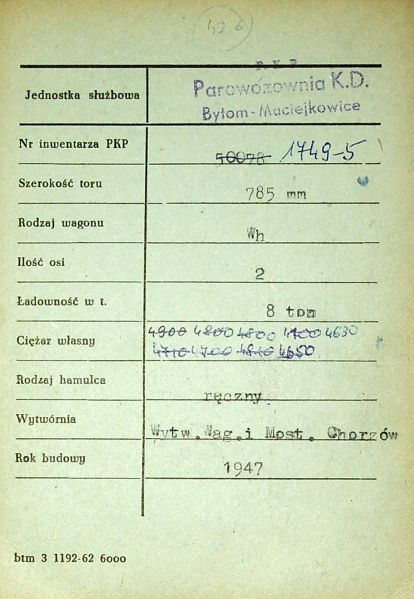 P.K.P.
Parowozownia K.D.
Bytom-Maciejkowice
Jednostka służbowa
Nr inwentarza PKP 50078 1749-5
Szerokość toru 785 mm
Rodzaj wagonu Wh
Ilość osi 2
Ładowność w t. 8 ton
4900 4800 4800 4700 4630
Ciężar własny
4710 4700 4810 4650
Rodzaj hamulca ręczny
Wytwórnia Wytw.Wag.i Most. Chorzów
Rok budowy 1947
btm 3 1192-62 6000